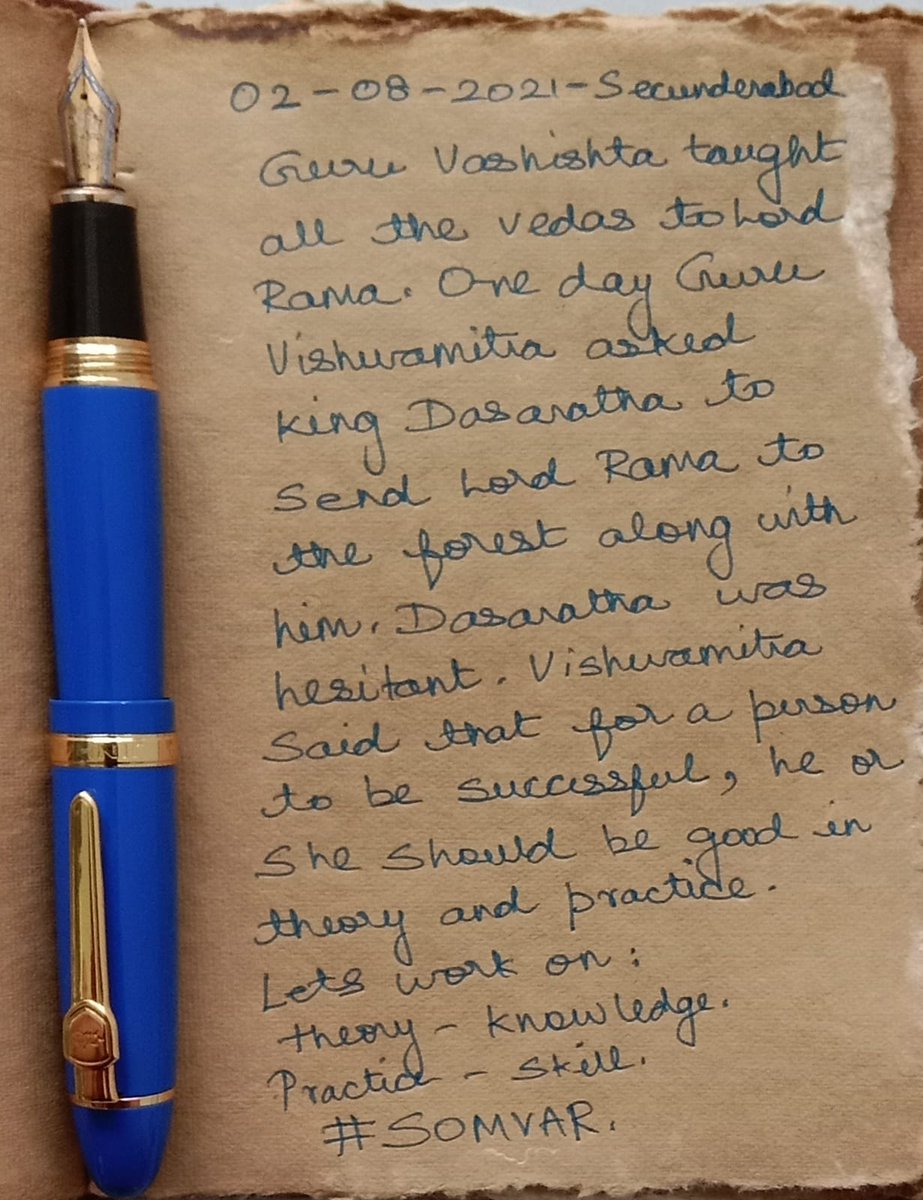 02-08-2021-Secunderabad
Guru Vashishta taught
all the vedas to Lord
Rama. One day Guru
Vishwamitra asked
king Dasaratha to
Send Lord Rama to
the forest along with
him. Dasaratha was
hesitant. Vishwamitra
Said that for a person
to be successful, he or
She should be good in
theory and practice.
Lets work on:
theory - knowledge.
Practice - Skill.
#SOMVAR.